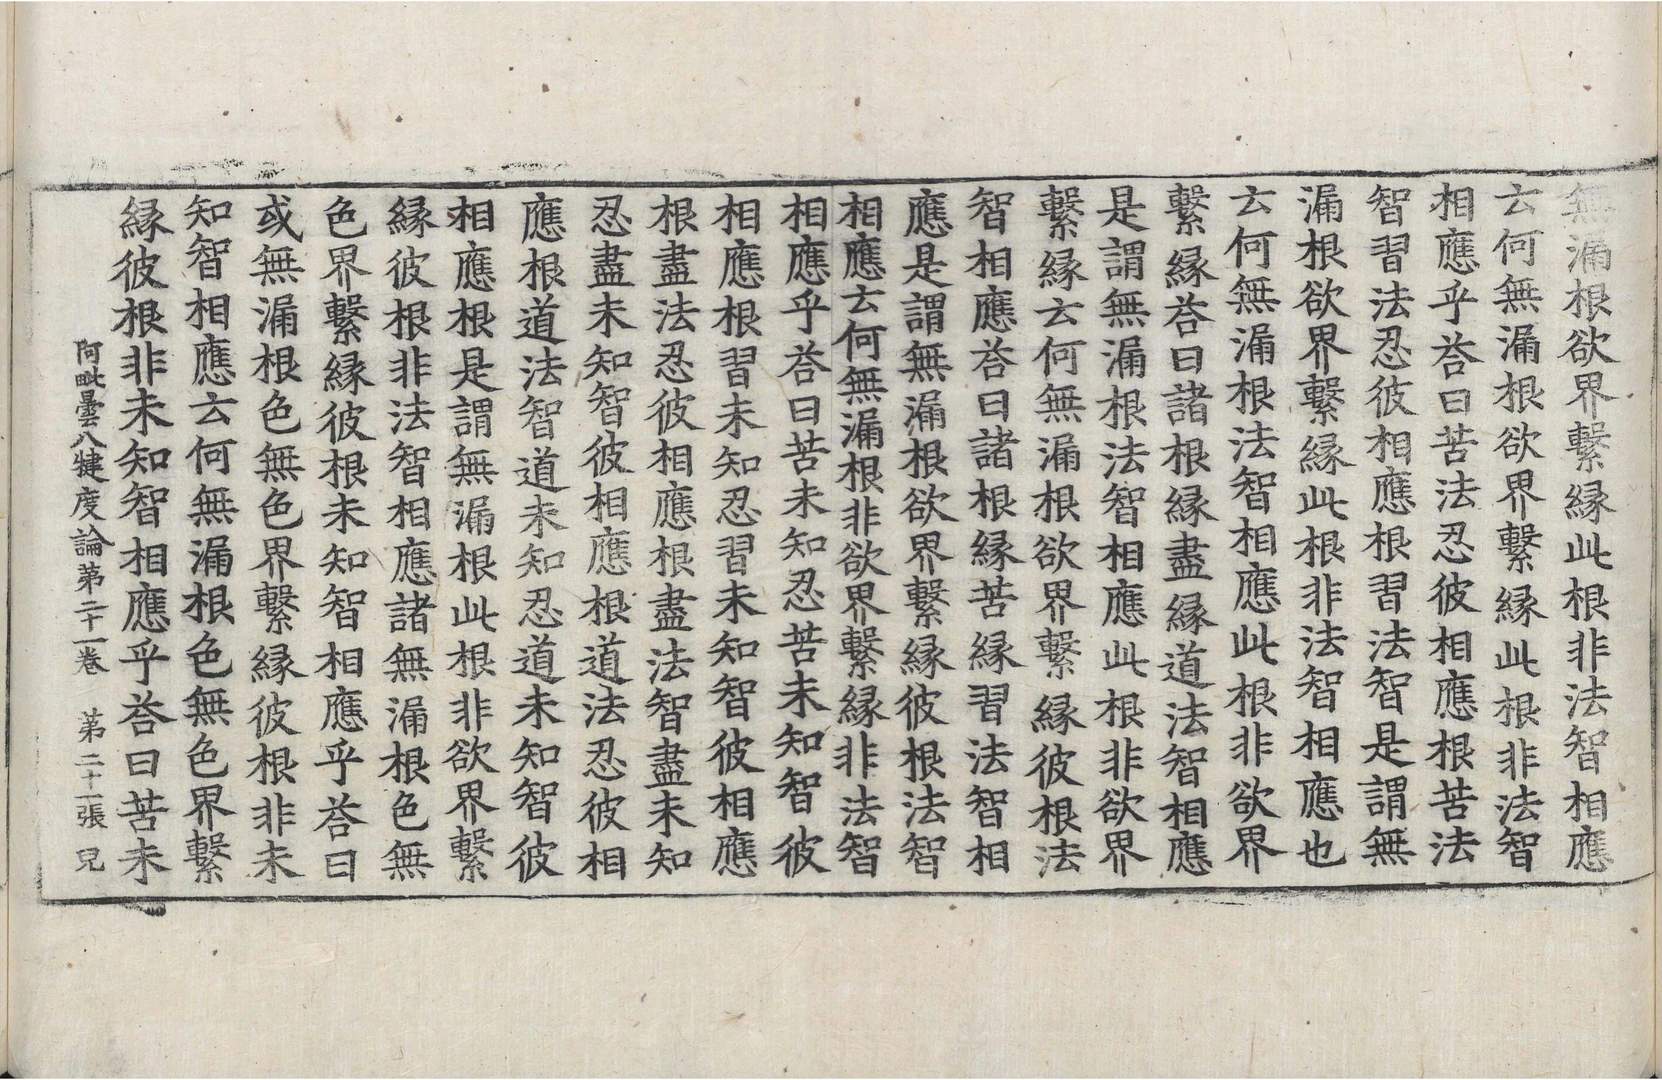 無漏根欲界繫緣此根非法智相應
云何無漏根欲界繫緣此根非法智
相應乎荅曰苦法忍彼相應根苦法
智習法忍彼相應根習法智是謂無
漏根欲界繫緣此根非法智相應也
云何無漏根法智相應此根非欲界
繫緣荅曰諸根緣盡緣道法智相應
是謂無漏根法智相應此根非欲界
繫緣云何無漏根欲界繫緣彼根法
智相應荅曰諸根緣苦緣習法智相
應是謂無漏根欲界繫緣彼根法智
相應云何無漏根非欲界繫緣非法智
相應乎荅曰苦未知忍苦未知智彼
相應根習未知忍習未知智彼相應
根盡法忍彼相應根盡法智盡未知
忍盡未知智彼相應根道法忍彼相
應根道法智道未知忍道未知智彼
相應根是謂無漏根此根非欲界繫
緣彼根非法智相應諸無漏根色無
色界繫緣彼根未知智相應乎荅曰
或無漏根色無色界繫緣彼根非未
知智相應云何無漏根色無色界繫
緣彼根非未知智相應乎荅曰苦未
阿毗曇八犍度論第二十一卷 第二十一張 兒